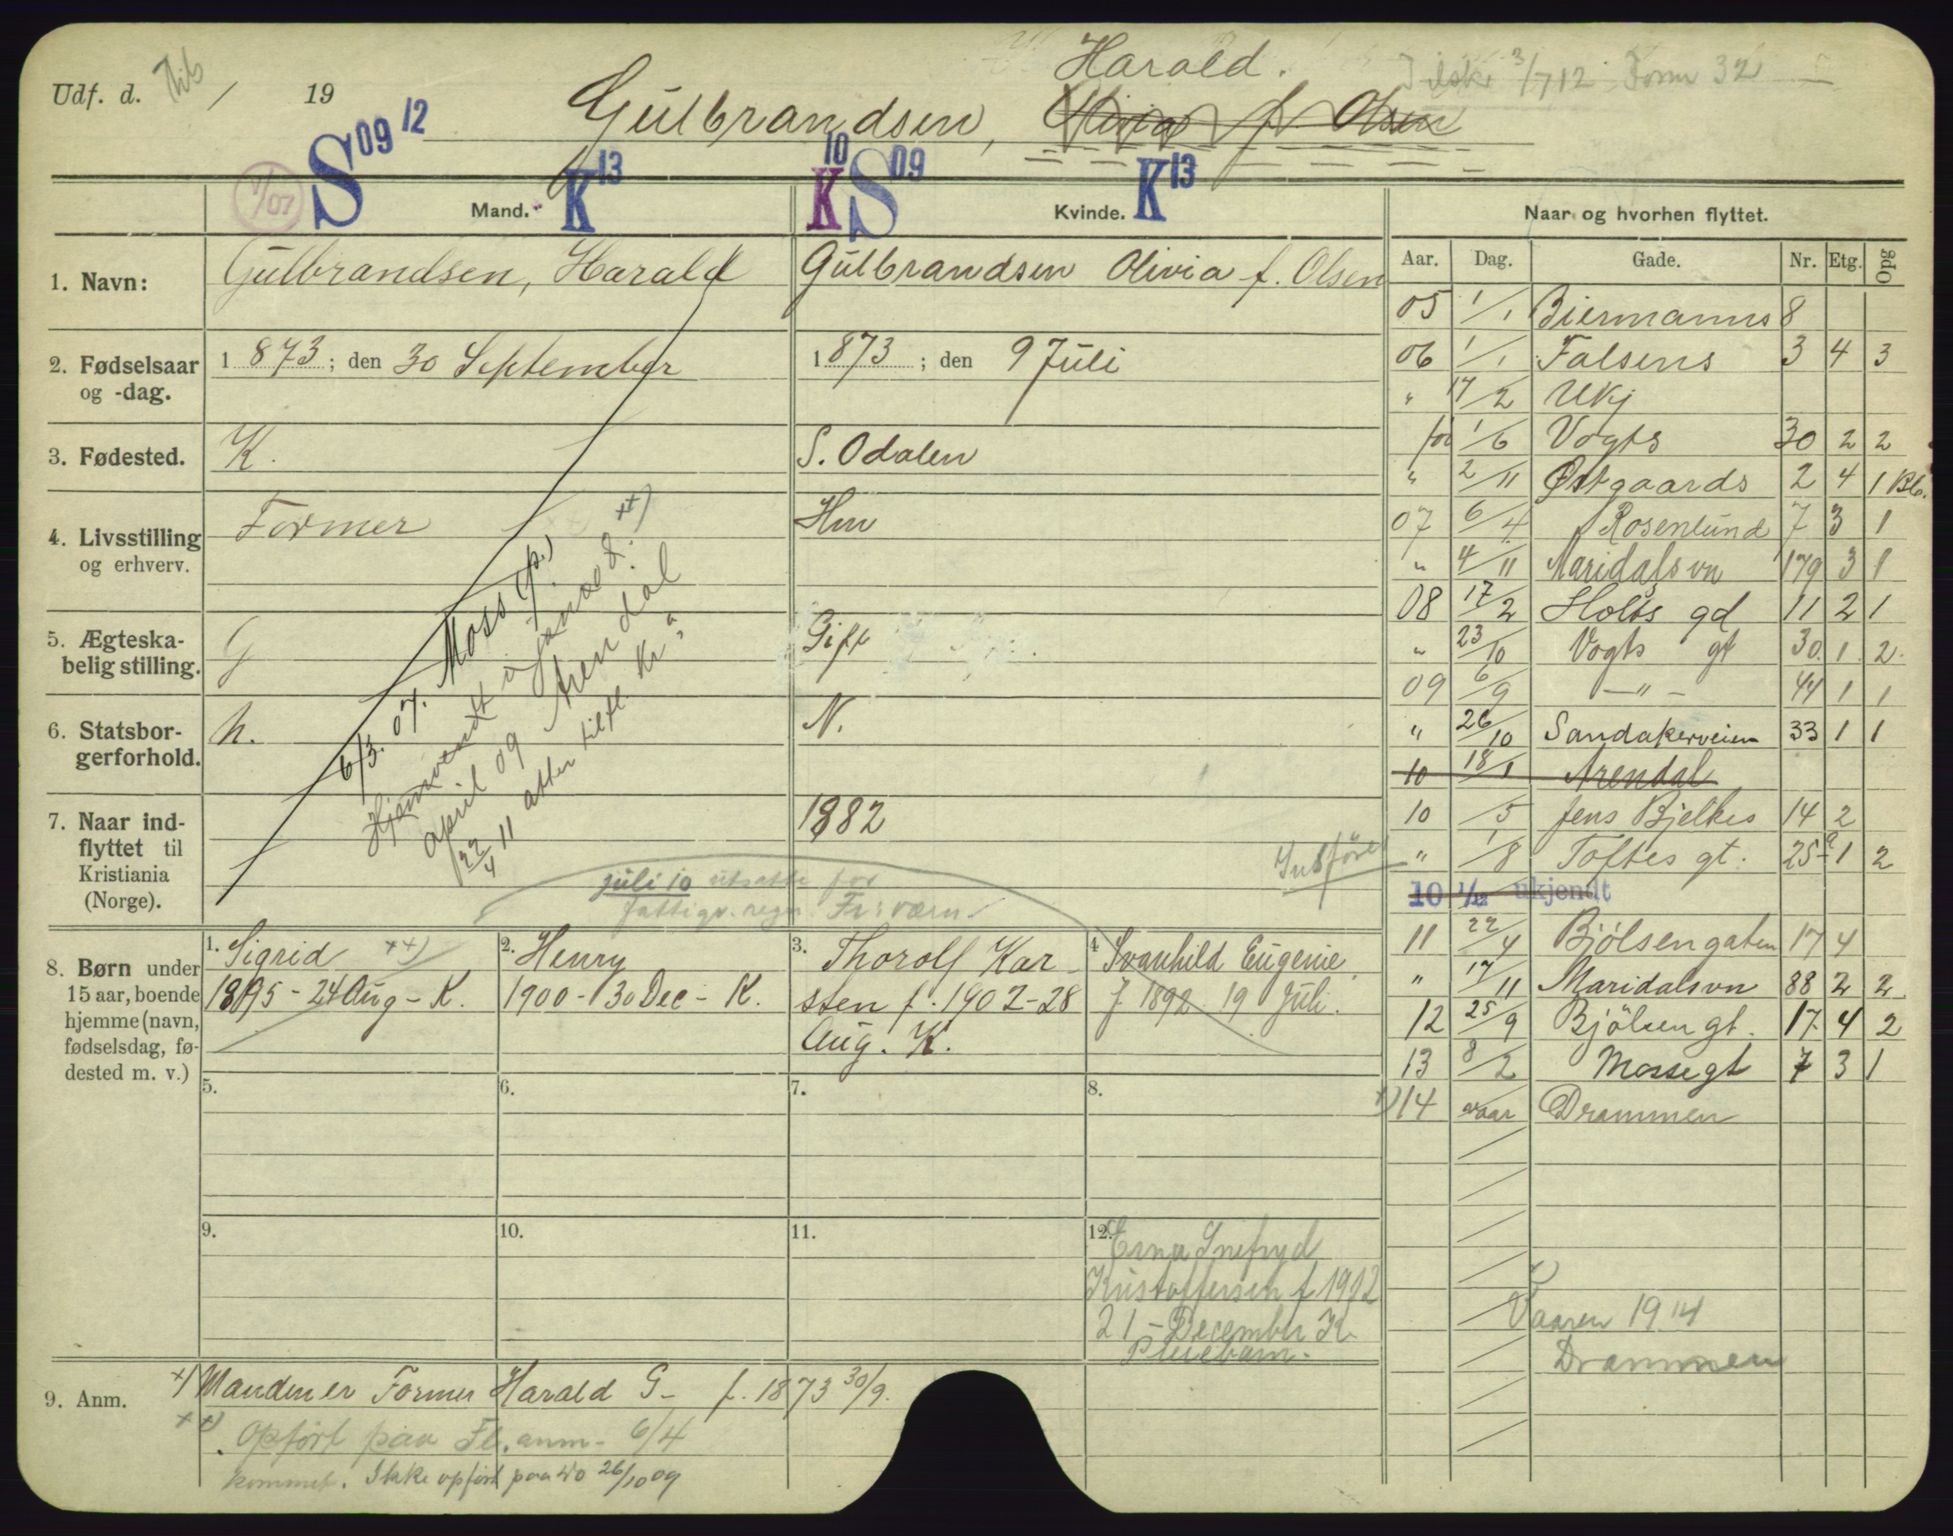 Harald.
Udf. d. / 19
Gulbrandsen, Olivia f. Olsen
3/7 12 Form 32
S 09 12 K 13 K 10 S 09 K 13
1/07
Mand. Kvinde. Naar og hvorhen flyttet.
Aar. Dag. Gade. Nr. Etg. Opg
1. Navn: Gulbrandsen, Harald Gulbrandsen Olivia f. Olsen
2. Fødselsaar og -dag. 1873; den 30 September 1873; den 9 Juli
3. Fødested. K. S. Odalen
4. Livsstilling og erhverv. Former Hm
5. Ægteska-
belig stilling. G Gift
6. Statsbor-
gerforhold. n. N.
7. Naar ind-
flyttet til
Kristiania
(Norge). 1882
6/3. 07. Moss (p.)
Hjemvendt i
april 09 Arendal
22/4 11 atter tilfl. Kr.
juli 10 utsatte for
fattigv.
05 1/1 Biermanns 8
06 1/1 Falsens 3 4 3
" 17/2 Ukj
1/6 Vogts 30 2 2
" 2/11 Østgaards 2 4 1 Bb.
07 6/4 Rosenlund 7 3 1
" 4/11 Maridalsvn 179 3 1
08 17/2 Holts gd 11 2 1
" 23/10 Vogts gt 30. 1. 2.
09 6/9 —"— 44 1 1
" 26/10 Sandakerveien 33 1 1
10 18/1 Arendal
10 /5 Jens Bjelkes 14 2
" 1/8 Toftes gt. 25 a 1 2
10 1/12 ukjendt
11 22/4 Bjølsengaten 17 4
" 17/11 Maridalsvn 88 2 2
12 25/9 Bjölsengt. 17. 4 2
13 8/2 Mossegt 7 3 1
x) 14 vaar Drammen
x)
Vaaren 1914
Drammen
8. Børn under
15 aar, boende
hjemme (navn,
fødselsdag, fø-
dested m. v.)
1. Sigrid xx)
1895 - 24 Aug - K.
2. Henry
1900 - 30 Dec - K.
3. Thorolf Kar-
sten f. 1902 - 28
Aug. K.
4 Svanhild Eugenie
f 1892 19 Juli.
5. 6. 7. 8.
9. 10. 11. 12.
Erna Snefryd
Kristoffersen f 1912
21 - December K.
Pleiebarn.
9. Anm. x) Manden er Former Harald G- f. 1873 30/9.
xx) Opført paa Fl. anm- 6/4
kommet. Ikke opført paa do 26/10 09